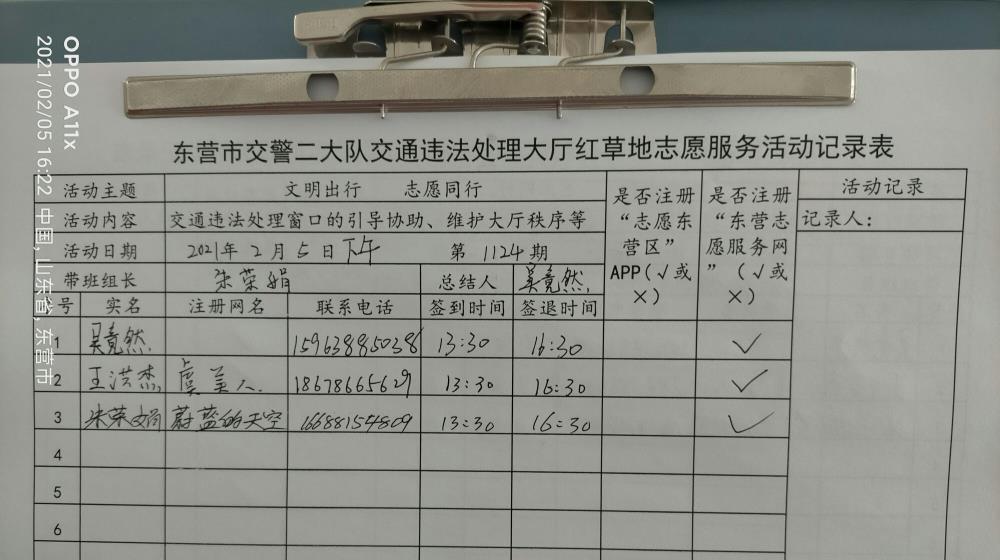 OPPO A11x
2021/02/05 16:22 中国,山东省,东营市
东营市交警二大队交通违法处理大厅红草地志愿服务活动记录表
活动主题 文明出行 志愿同行 是否注册“志愿东营区”APP(√或×) 是否注册“东营志愿服务网”(√或×) 活动记录
活动内容 交通违法处理窗口的引导协助、维护大厅秩序等 记录人:
活动日期 2021年 2 月 5 日 下午 第 1124 期
带班组长 朱荣娟 总结人 吴竟然
号 实名 注册网名 联系电话 签到时间 签退时间
1 吴竟然 15963885038 13:30 16:30 √
2 王洪杰 虞美人 18678665629 13:30 16:30 √
3 朱荣娟 蔚蓝的天空 16688154809 13:30 16:30 √
4
5
6